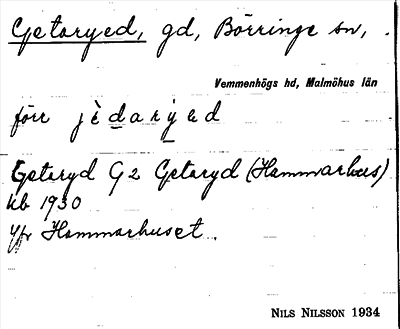 Getaryed, gd, Börringe sn,
Vemmenhögs hd, Malmöhus län
förr jèdarÿed
Getaryd G2 Getaryd (Hammarhus)
kb 1930
Jfr Hammarhuset.
NILS NILSSON 1934